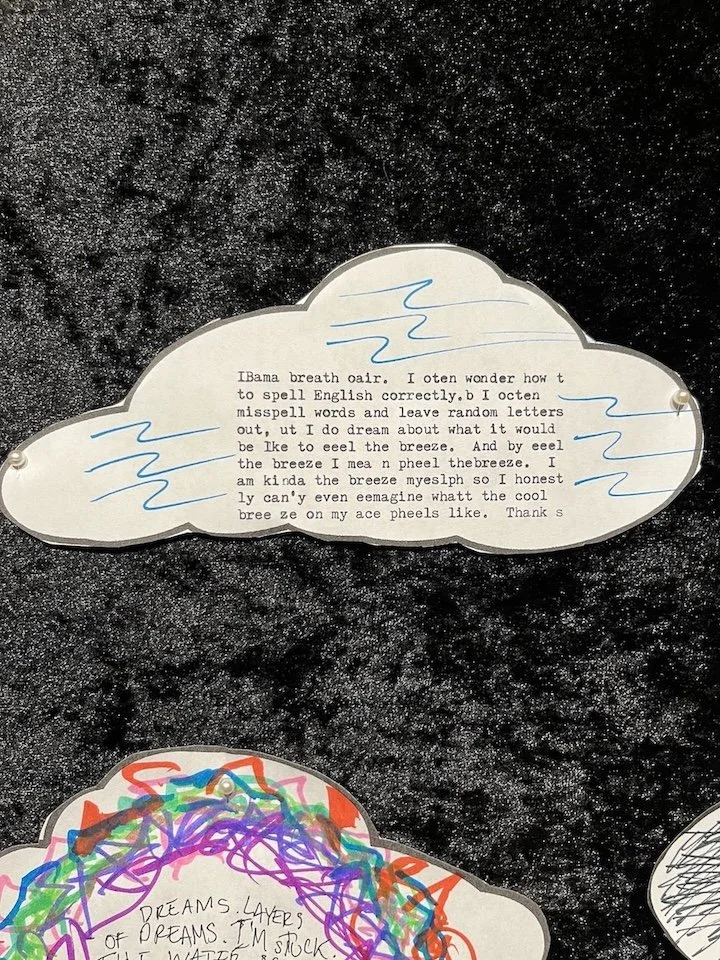 IBama breath oair.  I oten wonder how t
to spell English correctly.b I octen
misspell words and leave random letters
out, ut I do dream about what it would
be Ike to eeel the breeze.  And by eeel
the breeze I mea n pheel thebreeze.  I
am kinda the breeze myeslph so I honest
ly can'y even eemagine whatt the cool
bree ze on my ace pheels like.  Thank s
DREAMS. LAYERS
OF DREAMS. I'M STUCK.
THE WATER